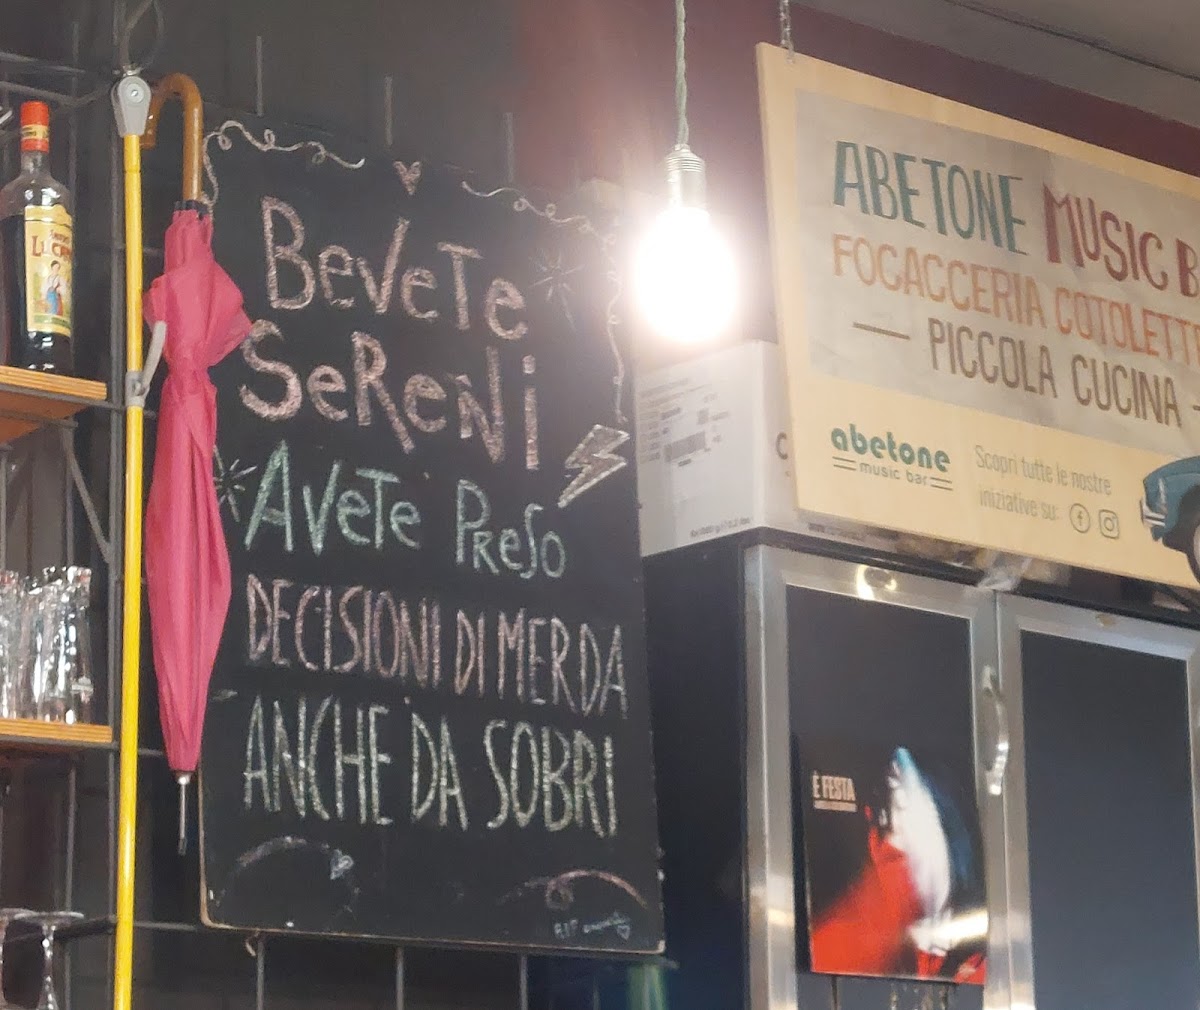 BeVeTe
SeReNi
AVeTe PReSo
DECISIONI DI MERDA
ANCHE DA SOBRI
ABETONE MUSIC B
FOCACCERIA COTOLETT
— PICCOLA CUCINA -
abetone
music bar
Scopri tutte le nostre
iniziative su:
È FESTA